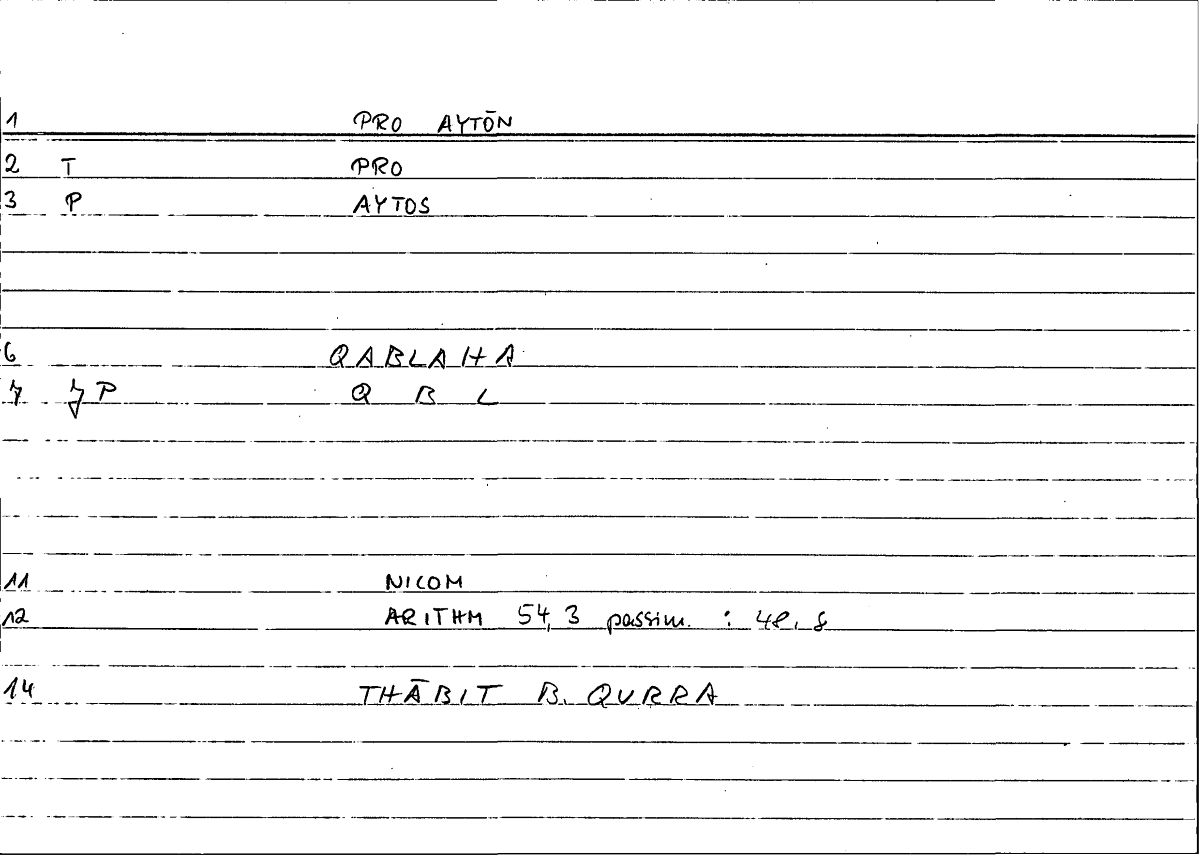 1 PRO AYTŌN
2 T PRO
3 P AYTOS
6 QABLAHA
7 P Q B L
11 NICOM
12 ARITHM 54,3 passim. : 48,8
14 THĀBIT B. QURRA